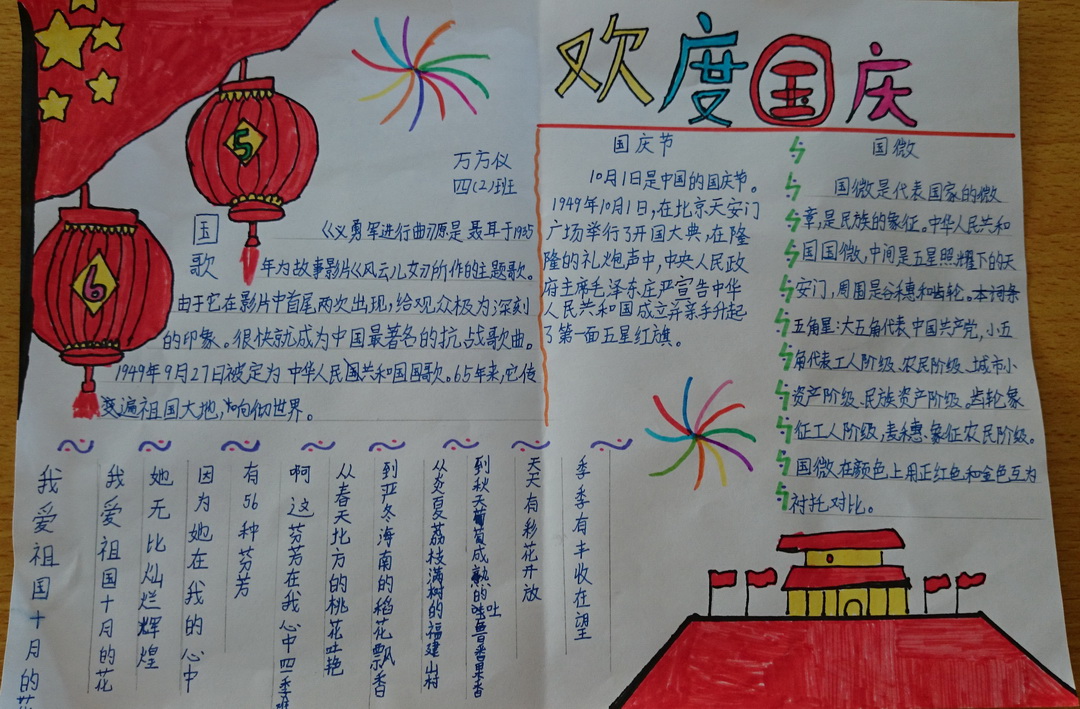 欢度国庆
5
6
万方仪
四(2)班
国歌
《义勇军进行曲》原是聂耳于1935
年为故事影片《风云儿女》所作的主题歌。
由于它在影片中首尾两次出现,给观众极为深刻
的印象。很快就成为中国最著名的抗战歌曲。
1949年9月27日被定为中华人民国共和国国歌。65年来,它传
遍祖国大地,响彻世界。
国庆节
10月1日是中国的国庆节。
1949年10月1日,在北京天安门
广场举行了开国大典,在隆
隆的礼炮声中,中央人民政
府主席毛泽东庄严宣告中华
人民共和国成立并亲手升起
了第一面五星红旗。
国微
国微是代表国家的微
章,是民族的象征。中华人民共和
国国微,中间是五星照耀下的天
安门,周围是谷穗和齿轮。本词条
五角星:大五角代表中国共产党,小五
角代表工人阶级、农民阶级、城市小
资产阶级、民族资产阶级。齿轮象
征工人阶级,麦穗、象征农民阶级。
国微在颜色上用正红色和金色互为
衬托对比。
我爱祖国十月的花
我爱祖国十月的花
她无比灿烂辉煌
因为她在我的心中
有56种芬芳
啊这芬芳在我心中四季
从春天北方的桃花吐艳
到亚冬海南的稻花飘香
从炎夏荔枝满树的福建山村
到秋天葡萄成熟的吐鲁番果香
天天有彩花开放
季季有丰收在望